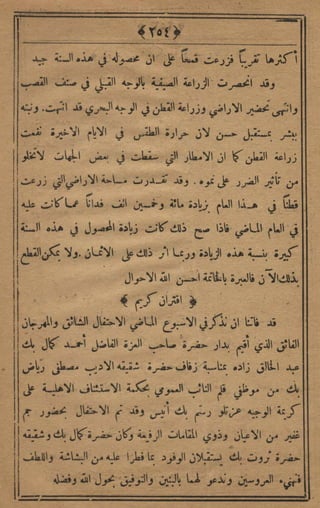 ﴿٢٥٤﴾
أكثرها تقريبًا فزرعت قمحًا على ان محصوله في هذه السنة جيد
وقد انحصرت الزراعة الصيفية بالوجه القبلي في صنف القصب
وانتهى تحضير الاراضي وزراعة القطن في الوجه البحري قد انتهت. ونبته
يبشر بمستقبل حسن لان حرارة الطقس في الايام الاخيرة نفعت
زراعة القطن كما ان الامطار التي سقطت في بعض الجهات لاتخلو
من تأثير الضرر على نموه. وقد تقدرت مساحة الاراضي التي زرعت
قطنًا في هذا العام بزيادة مائة وخمسين الف فدانًا عما كانت عليه
في العام الماضي فاذا صح ذلك كانت زيادة المحصول في هذه السنة
كبيرة بنسبة هذه الزيادة وربما اثر ذلك على الاثمان. ولا يمكن القطع
بذلك الآن فالعبرة بالخاتمة احسن الله الاحوال
﴿ اقتران كريم ﴾
قد فاتنا ان نذكر في الاسبوع الماضي الاحتفال الشائق والمهرجان
الفائق الذي أقيم بدار حضرة صاحب العزة الفاضل أحمد كمال بك
عبد الخالق زاده بمناسبة زفاف حضرة شقيقه الاديب مصطفى رياض
بك من موظفي قلم النائب العمومي بمحكمة الاستئناف الاهلية على
كريمة الوجيه عزتلو رستم بك أنيس وقد تم الاحتفال بحضور جم
غفير من الاعيان وذوي المقامات الرفيعة وكان حضرة كمال بك وشقيقه
حضرة ثروت بك يستقبلان الوفود بما فطرا عليه من البشاشة واللطف
فنهنيء العروسين وندعو لهما بالبنين والتوفيق بحول الله وفضله